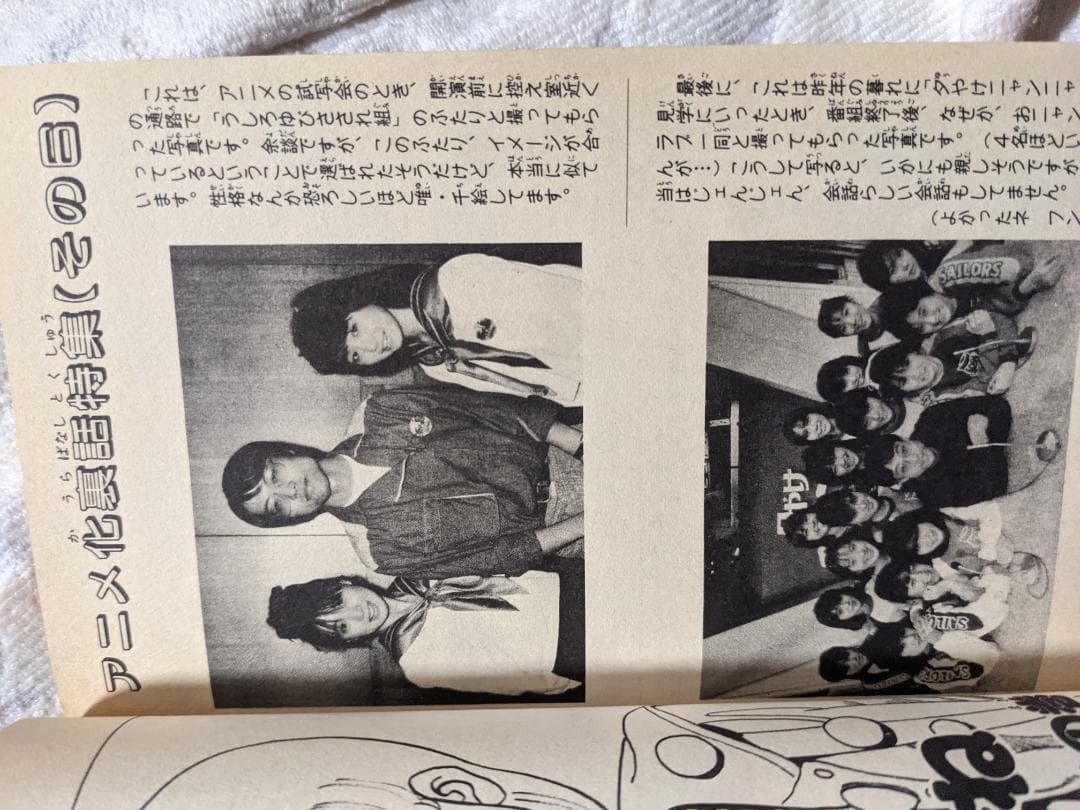 アニメ化裏話特集(その四)
これは、アニメの試写会のとき、開演前に控え室近く
の通路で「うしろゆびさされ組」のふたりと撮ってもら
った写真です。余談ですが、このふたり、イメージが合
っているということで選ばれたそうだけど、本当に似て
います。性格なんか恐ろしいほど唯・千絵してます。
最後に、これは昨年の暮れに「夕やけニャンニャ
見学にいったとき、番組終了後、なぜか、おニャン
ラブ一同と撮ってもらった写真です。(4名ほどい
んが…)こうして写ると、いかにも親しそうですが
当はじぇんじぇん、会話らしい会話もしてません。
(よかったネ フン
SAILORS
やけ
SAILOR
SAILOR
ね